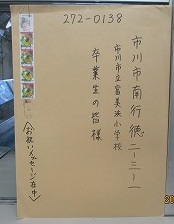 272-0138
市川市南行徳二-三-一
市川市立富美浜小学校
卒業生の皆様
〈お祝いメッセージ在中〉